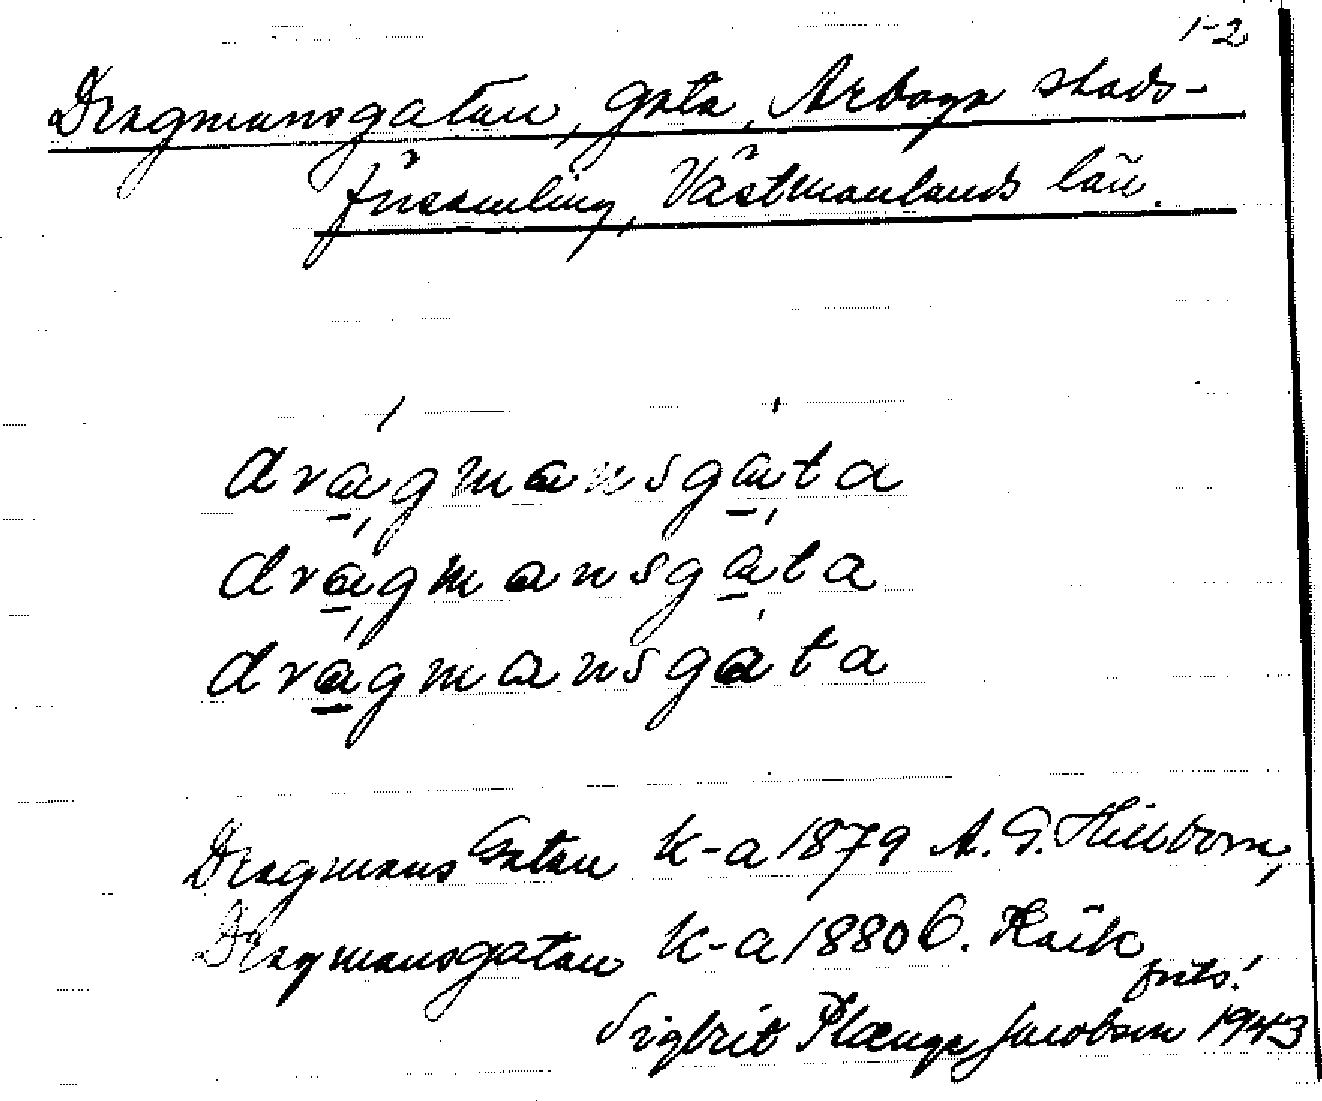 1-2
Dragmansgatan, gata, Arboga stads-
församling, Västmanlands län.
drágmansgáta
drágmansgáta
drágmansgáta
Dragmans Gatan k-a 1879 A. G.
Dragmansgatan k-a 1880 C.
forts.!
Sigbrit Plænge Jacobson 1943